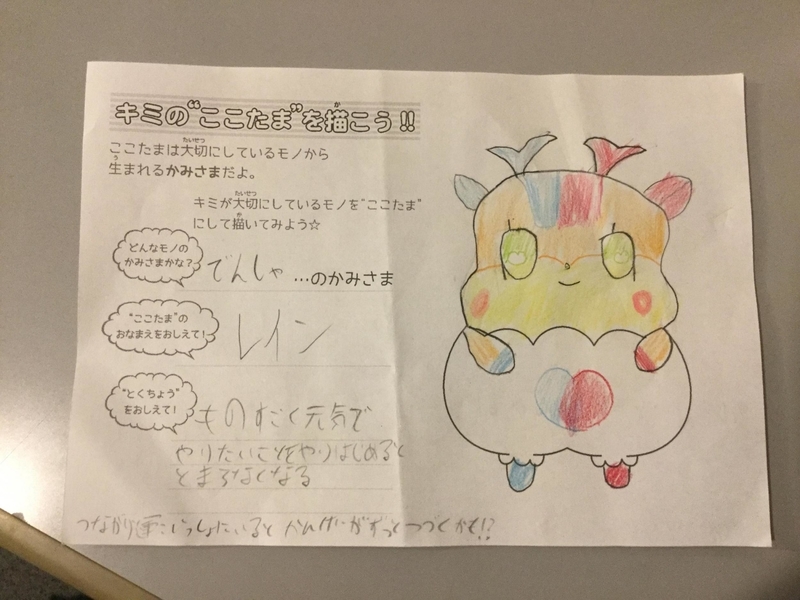 キミの“ここたま”を描こう!!
ここたまは大切にしているモノから
生まれるかみさまだよ。
キミが大切にしているモノを“ここたま”
にして描いてみよう☆
どんなモノの
かみさまかな?
でんしゃ …のかみさま
“ここたま”の
おなまえをおしえて!
レイン
“とくちょう”
をおしえて!
ものすごく元気で
やりたいことをやりはじめると
とまらなくなる
つながり いっしょにいると かんけいがずっとつづくかも!?